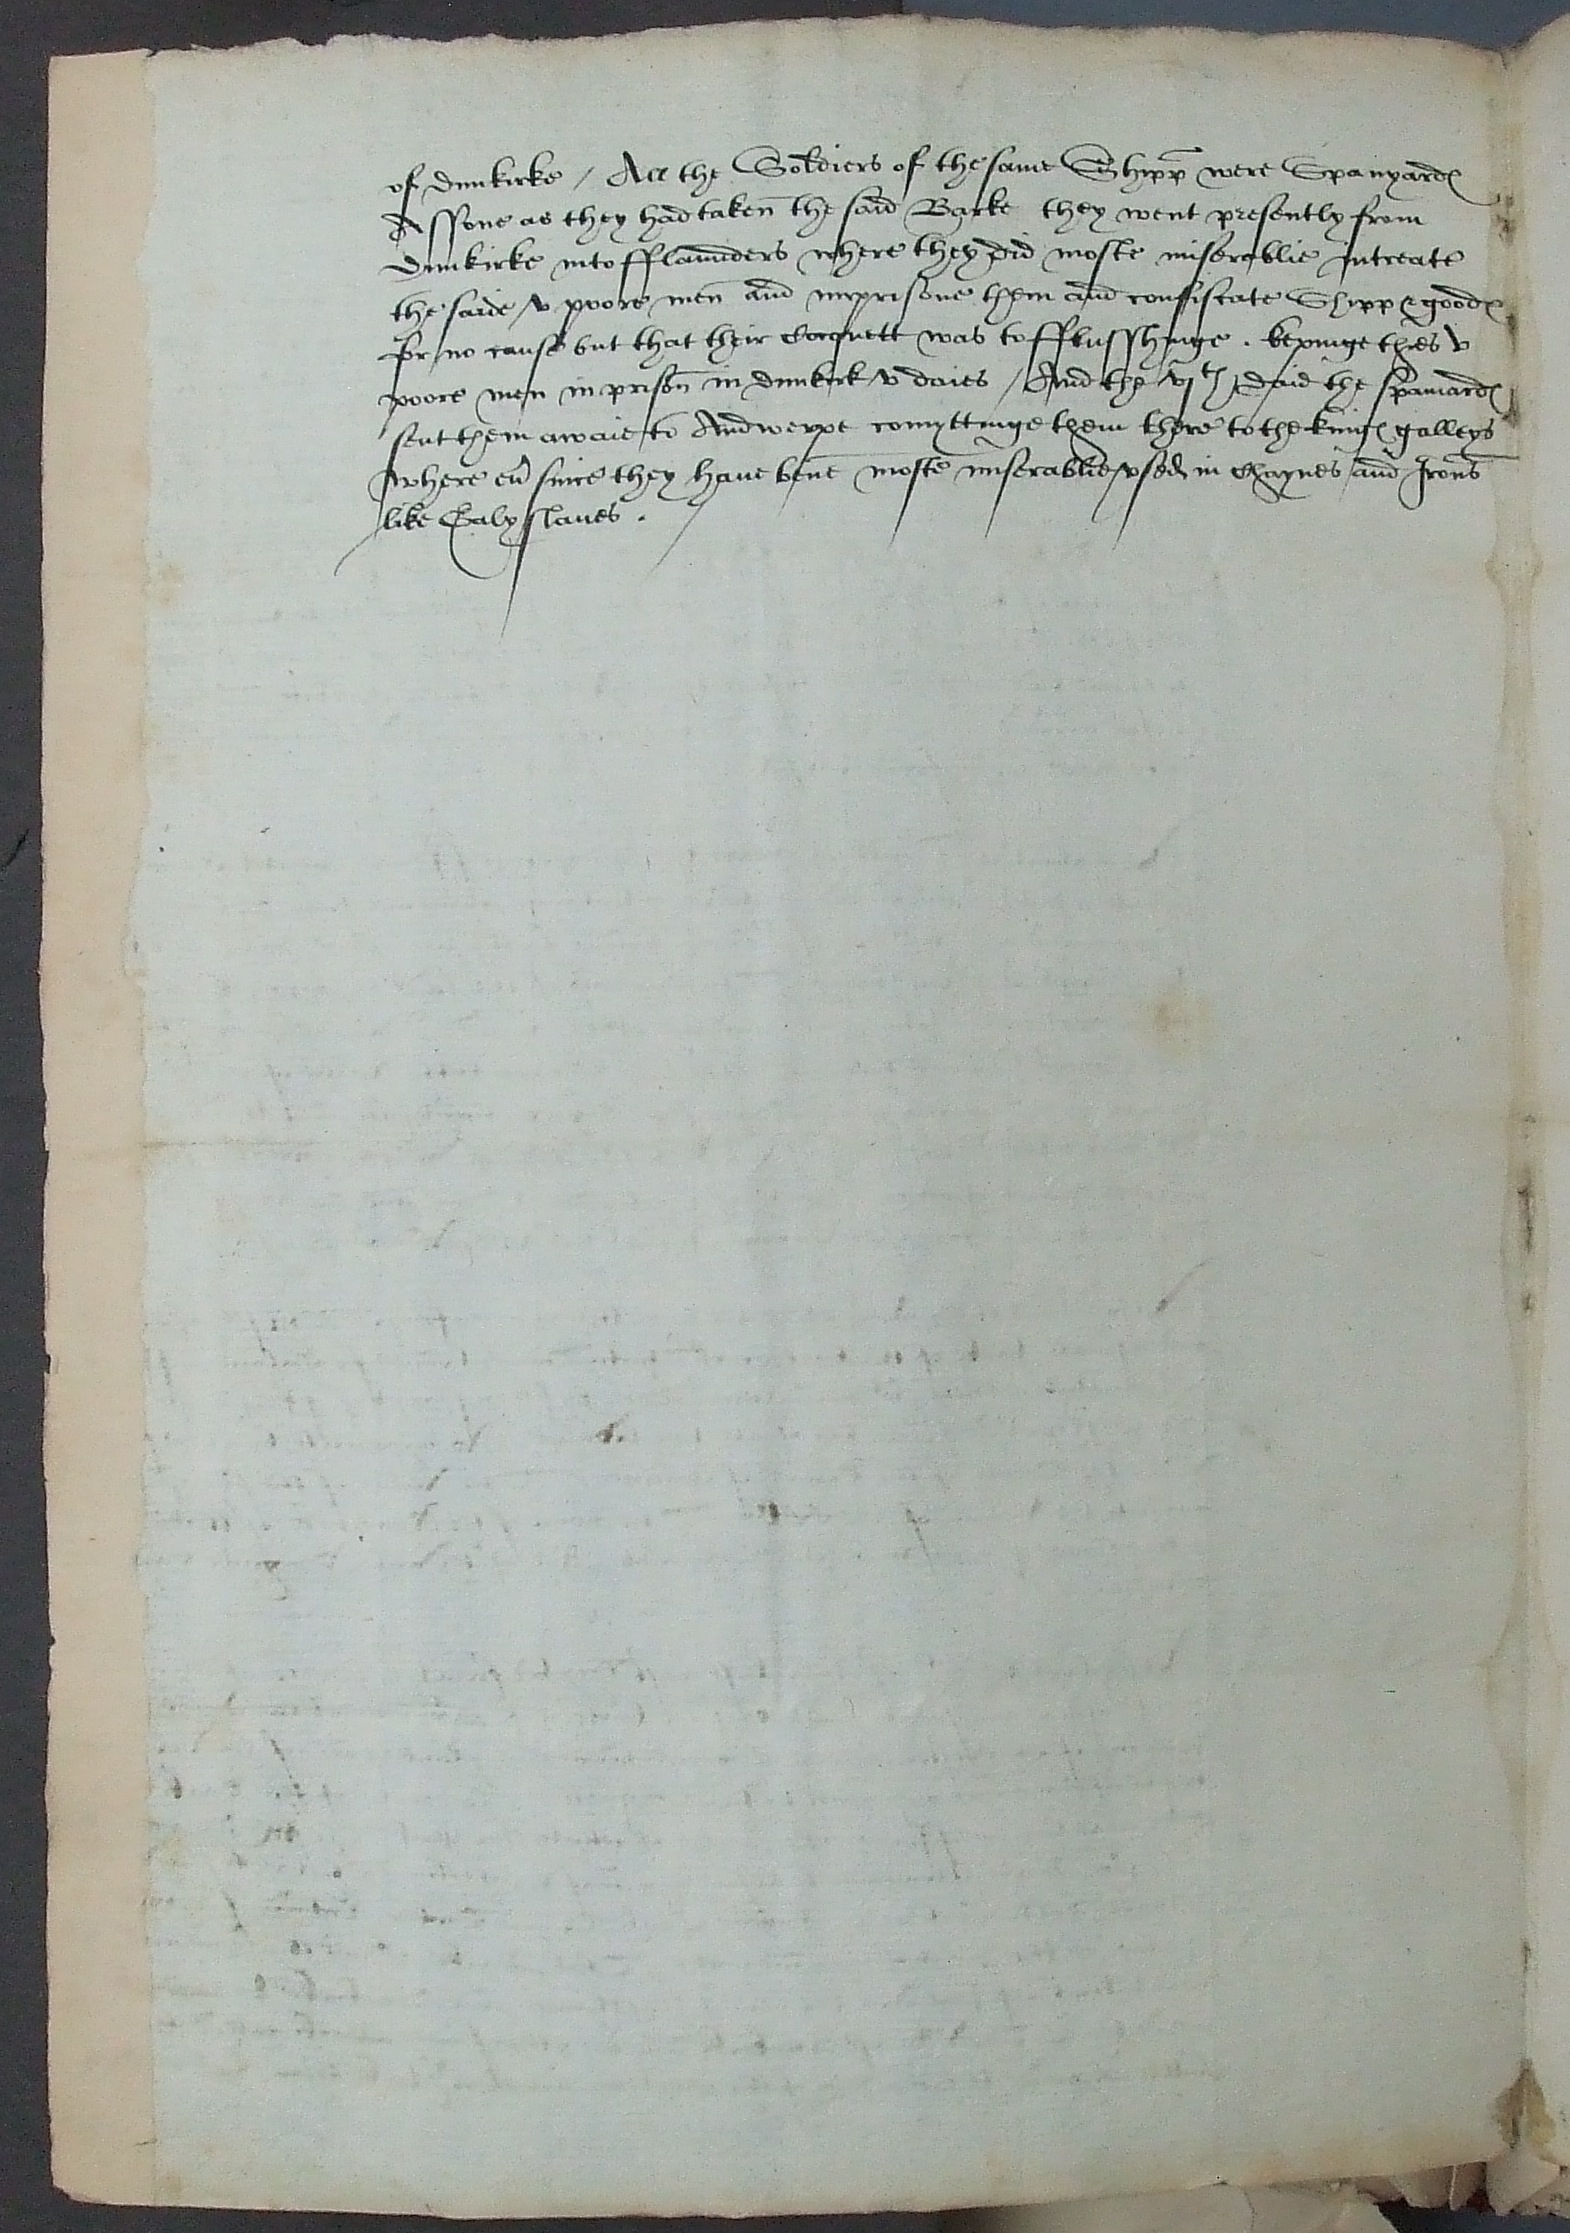 of dunkirke / All the Soldiers of the same Shipp were Spanyardes
Assone as they had taken the said Barke they went presently from
dunkirke into fflaunders where they did moste miserablie intreate
the saide v poore men and imprisone them and confiscate Shipp & goodes
for no cause but that their Cocquett was to fflusshinge . kepinge thes v
poore men in prison in dunkirk v daies / And the vjth daie the spaniardes
sent them awaie to Andwerpe comyttinge them there to the kinges galleys
where eu~ since they haue bene moste miserablie vsed in Chaynes and Irons
like Galy slaues .